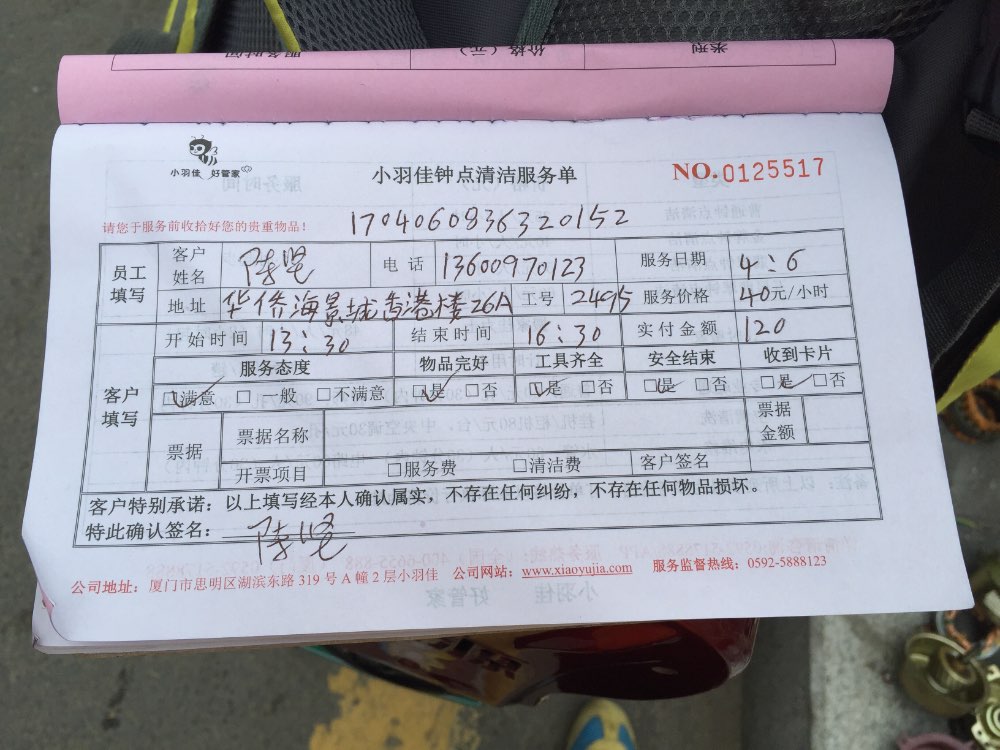 服务时间 价格（元） 类型
小羽佳 好管家
小羽佳钟点清洁服务单
NO.0125517
请您于服务前收拾好您的贵重物品！
1704060836320152
员工填写 客户姓名 陈坚 电话 13600970123 服务日期 4:6
地址 华侨海景城香港楼26A 工号 2495 服务价格 40元/小时
客户填写 开始时间 13:30 结束时间 16:30 实付金额 120
服务态度 物品完好 工具齐全 安全结束 收到卡片
☑满意 □一般 □不满意 ☑是 □否 ☑是 □否 ☑是 □否 ☑是 □否
票据 票据名称 票据金额
开票项目 □服务费 □清洁费 客户签名
客户特别承诺：以上填写经本人确认属实，不存在任何纠纷，不存在任何物品损坏。
特此确认签名： 陈坚
公司地址：厦门市思明区湖滨东路 319 号 A 幢 2 层小羽佳 公司网站：www.xiaoyujia.com 服务监督热线：0592-5888123